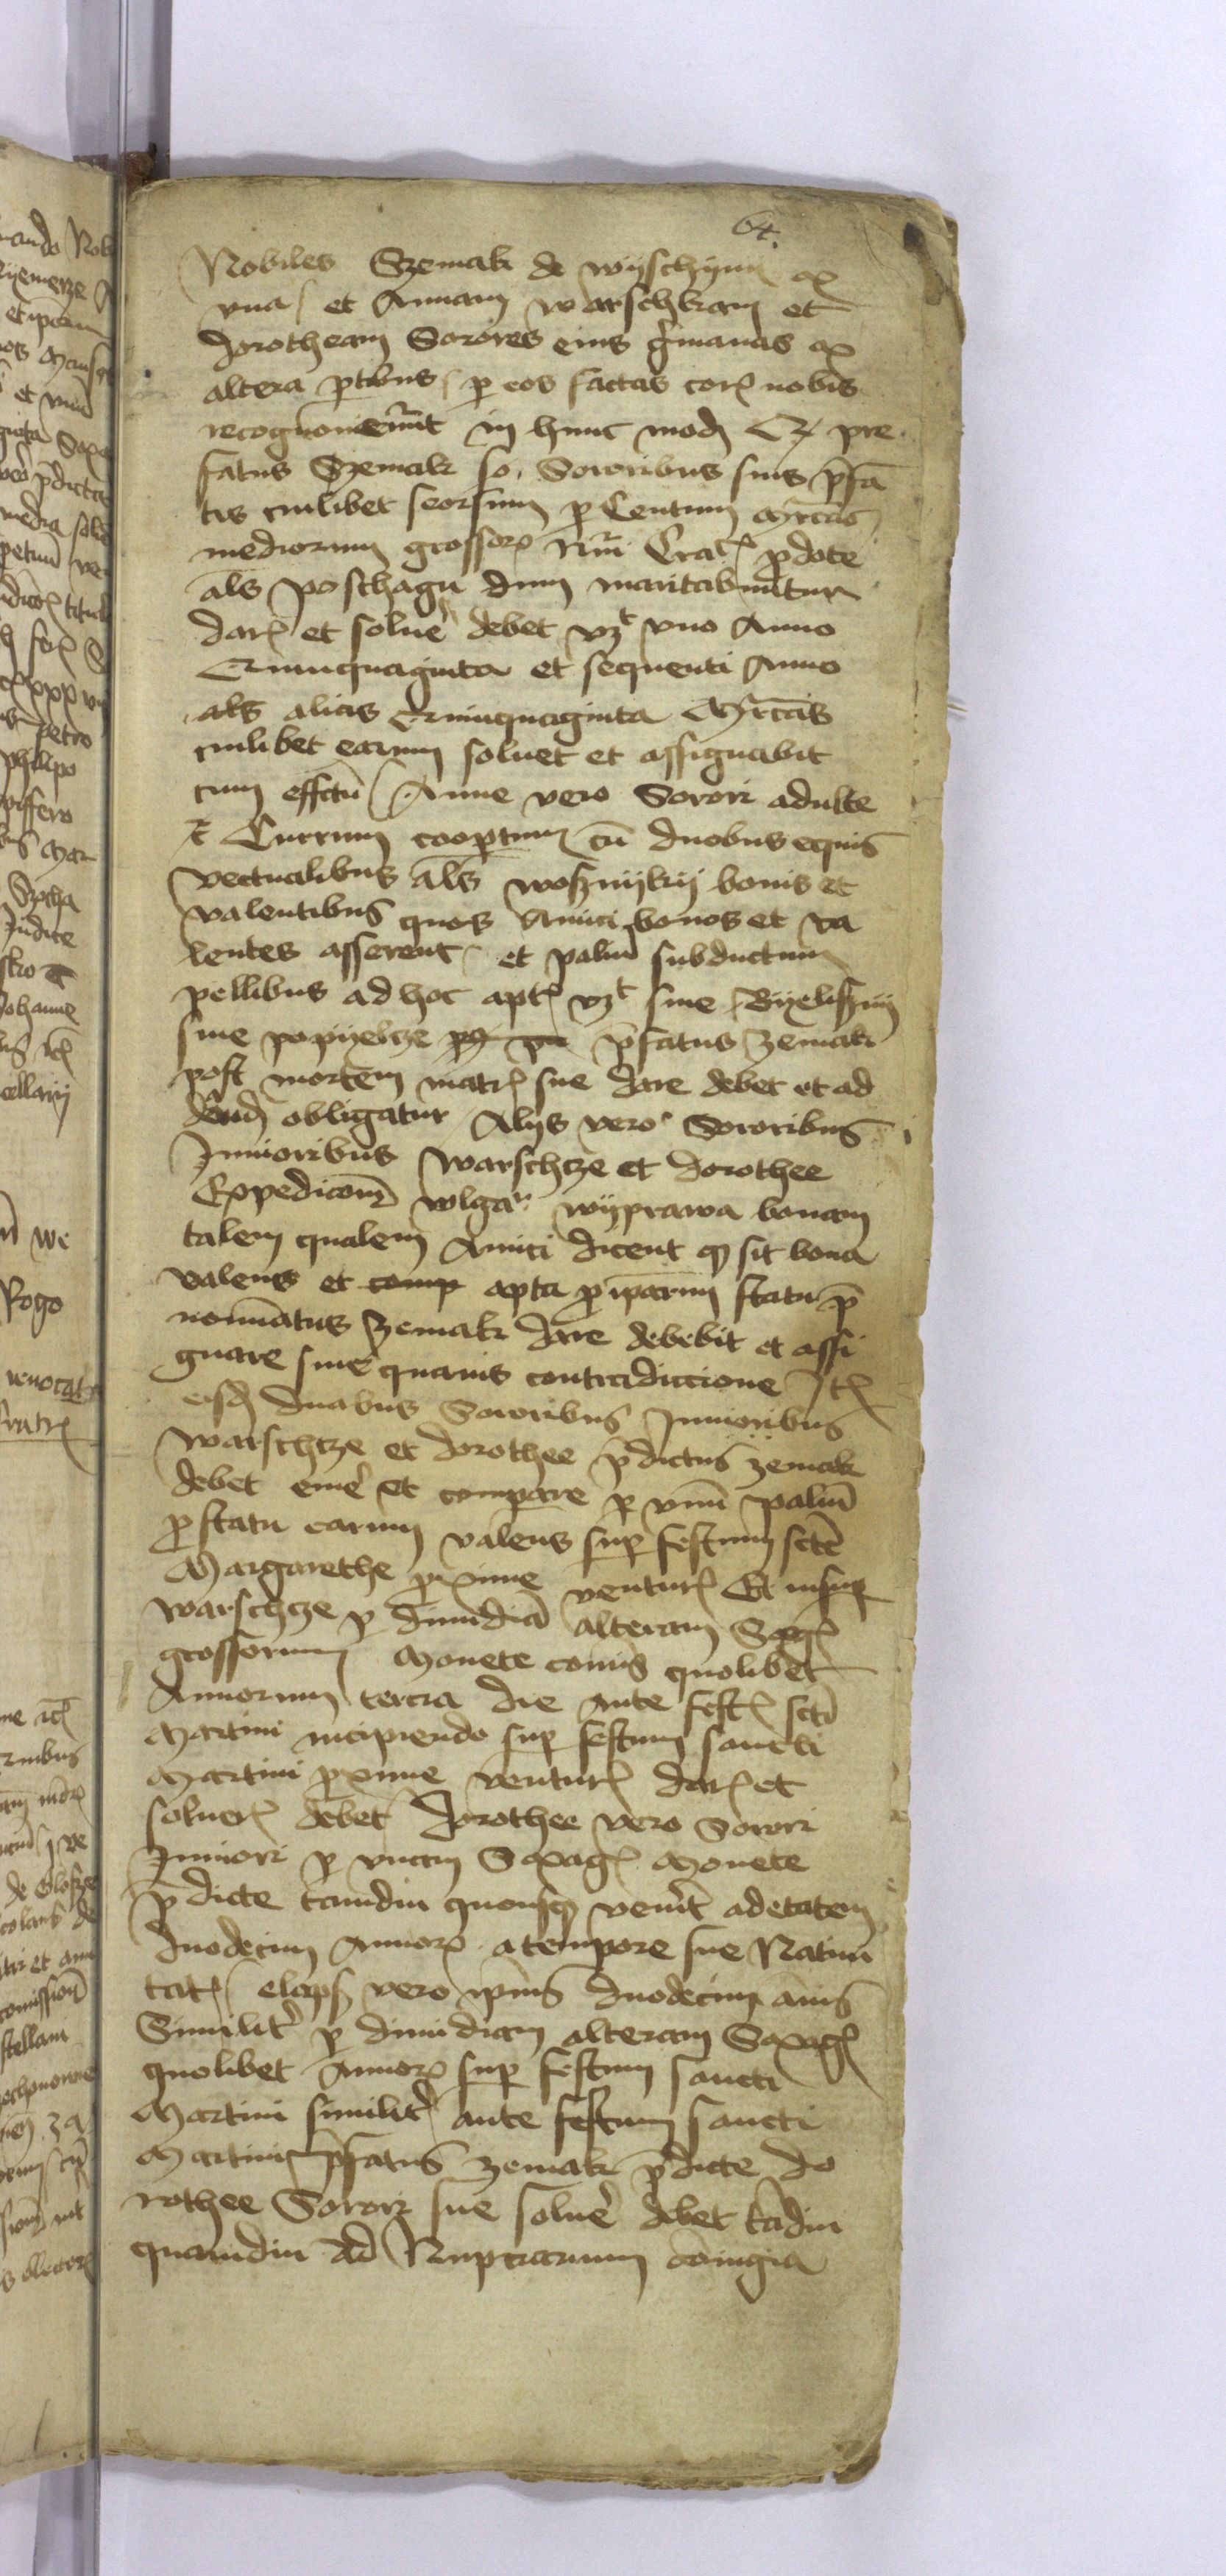 64.
Nobiles Szemak de wyschyny ex
vna et Annam warschkam et
dorotheam Sorores eius g̃manas ex
altera ptibus p eos factas corꝭ nobis
recognouerũt in hunc modũ Qz pre
fatus Szemak so. Sororibus suis p̃fa
tis cuilibet seorsum p Centum Mrcas
mediorum grossorꝭ Nũi Cracꝭ p dote
als poschagu dum maritabuntur
darꝭ et soluẽ debet vzt vno Anno
Quinquaginta et sequenti Anno
als alias Quinquaginta Mrcas
cuilibet earum soluet et assignabit
cum effctũ Anne vero Sorori adulte
Currum coopertum cũ duobus equis
vectualibus als woznyky bonis et
valentibus quos Amici bonos et va
lentes asserent et paliũ subductum
pellibus ad hoc aptꝭ vzt siue Byelizny
siue popyelcze p̃fatus Szemak
post mortem matrꝭ sue dare debet et ad
dandũ obligatur Alys vero Sororibus
Junioribus warschcze et dorothee
Expedicoem wlgar wyprawa bonam
talem qualem Amici dicent qz sit bona
valens et comp apta p iparum statu p̃
nominatus Szemak dare debebit et assi
gnare sine quauis contradiccione Itꝭ
eisdꝭ duabus Sororibus Junioribus
warschcze et dorothee p̃dictus Szemak
debet emẽ et compare p vnũ paliũ
p statu earum valens sup festum scte
Margarethe proxime venturꝭ Et insup
warschcze p dimidiã alteram Sexagꝭ
grossorum Monete cõmis quolibet
Annorum tercia die ante festꝭ scti
Martini incipiendo sup festum sancti
Martini proxime venturꝭ darꝭ et
soluerꝭ debet dorothee vero Sorori
Juniori p vnam Sexagꝭ Monete
p̃dicte tamdiu quousqz venĩt ad etatem
duodecim Annorꝭ a tempore sue Natiui
tatꝭ elapsꝭ vero ipius duodecim annis
Similitꝭ p dimidiam alteram Sexagꝭ
quolibet Annorꝭ sup festum sancti
Martini similitꝭ ante festum sancti
Martini p̃fatus Szemak p̃dicte do
rothee Sorori sue soluẽ debet tãdiu
quamdiu ad Nupciarum cõiugia